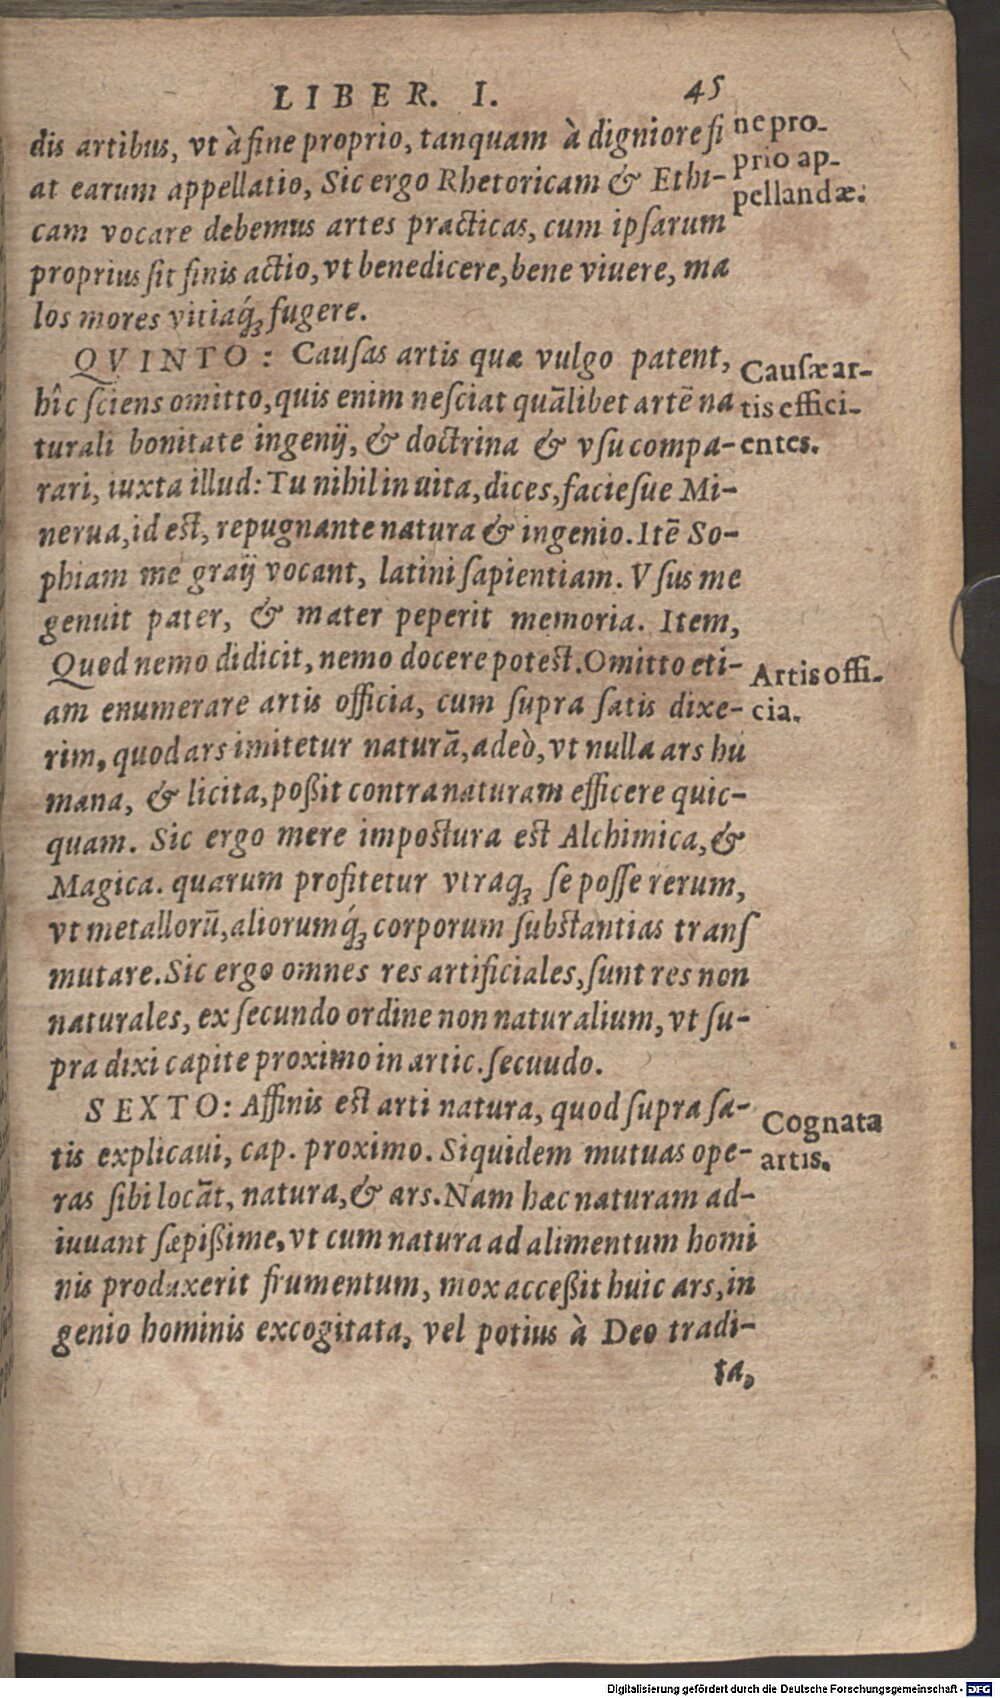 LIBER. I. 45
dis artibus, vt à fine proprio, tanquam à digniore fi
at earum appellatio, Sic ergo Rhetoricam & Ethi-
cam vocare debemus artes practicas, cum ipsarum
proprius sit finis actio, vt benedicere, bene viuere, ma
los mores vitiaq́ꝫ fugere.
ne pro-
prio ap-
pellandæ.
QVINTO: Causas artis quæ vulgo patent,
hîc sciens omitto, quis enim nesciat quãlibet artẽ na
turali bonitate ingenij, & doctrina & vsu compa-
rari, iuxta illud: Tu nihil in uita, dices, faciesue Mi-
nerua, id est, repugnante natura & ingenio. Itẽ So-
phiam me graij vocant, latini sapientiam. Vsus me
genuit pater, & mater peperit memoria. Item,
Quod nemo didicit, nemo docere potest. Omitto eti-
am enumerare artis officia, cum supra satis dixe-
rim, quod ars imitetur naturã, adeò, vt nulla ars hu
mana, & licita, poßit contra naturam efficere quic-
quam. Sic ergo mere impostura est Alchimica, &
Magica. quarum profitetur vtraqꝫ se posse rerum,
vt metallorũ, aliorumq́ꝫ corporum substantias trans
mutare. Sic ergo omnes res artificiales, sunt res non
naturales, ex secundo ordine non naturalium, vt su-
pra dixi capite proximo in artic. secuudo.
Causæ ar-
tis effici-
entes.
Artis offi-
cia.
SEXTO: Affinis est arti natura, quod supra sa-
tis explicaui, cap. proximo. Siquidem mutuas ope-
ras sibi locãt, natura, & ars. Nam hæc naturam ad-
iuuant sæpißime, vt cum natura ad alimentum homi
nis produxerit frumentum, mox acceßit huic ars, in
genio hominis excogitata, vel potius à Deo tradi-
ta,
Cognata
artis.
Digitalisierung gefördert durch die Deutsche Forschungsgemeinschaft - DFG